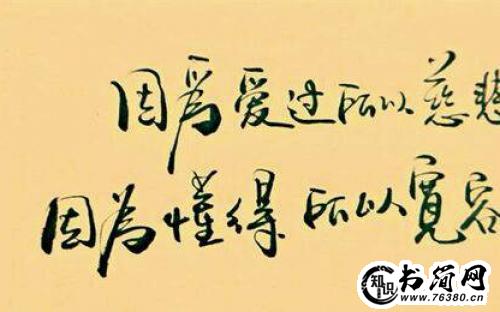 因爲爱过所以慈悲
因为懂得所以寬容
知识 书简网
www.76380.cn